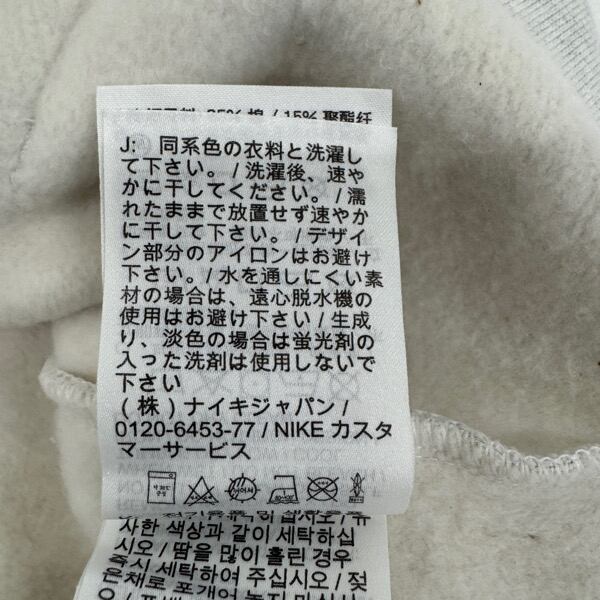 85% 棉 / 15% 聚酯纤
J: 同系色の衣料と洗濯し
て下さい。 / 洗濯後、速や
かに干してください。 / 濡
れたままで放置せず速やか
に干して下さい。 / デザイ
ン部分のアイロンはお避け
下さい。 / 水を通しにくい素
材の場合は、遠心脱水機の
使用はお避け下さい / 生成
り、淡色の場合は蛍光剤の
入った洗剤は使用しないで
下さい
(株) ナイキジャパン /
0120-6453-77 / NIKE カスタ
マーサービス
하십시오 / 유
사한 색상과 같이 세탁하십
시오 / 땀을 많이 흘린 경우
즉시 세탁하여 주십시오 / 젖
은채로 포개어 놓지 마십시